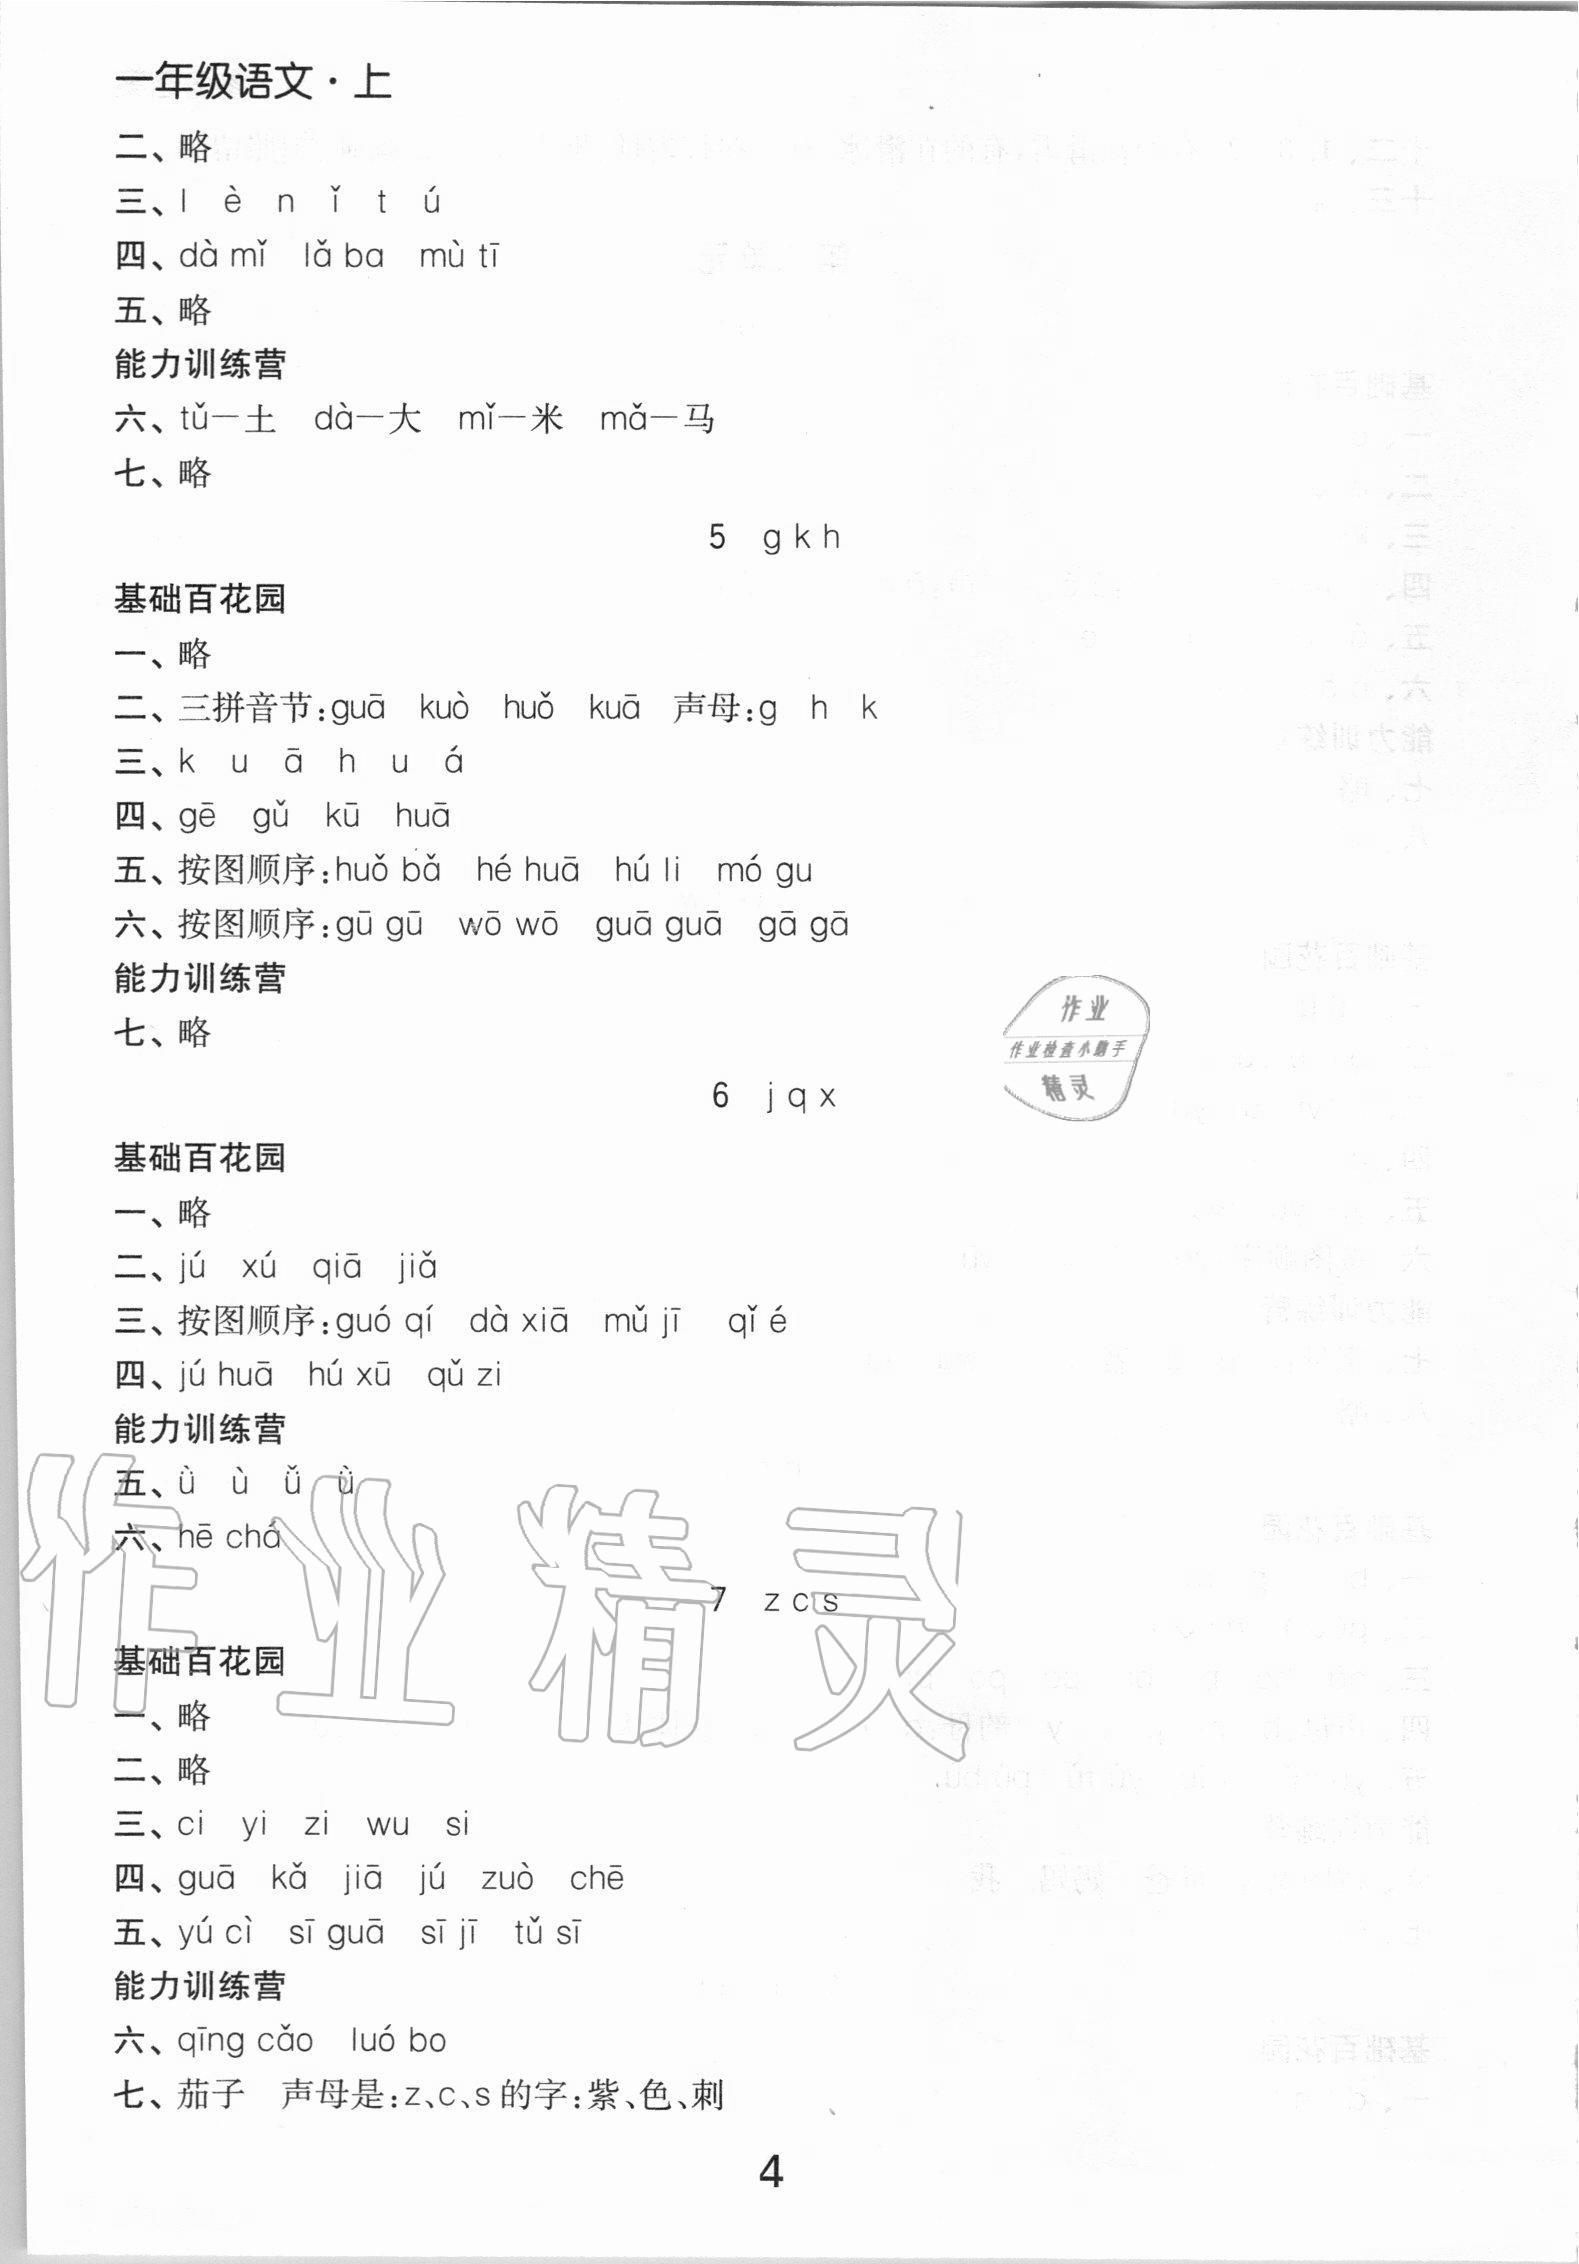 一年级语文·上
二、略
三、l è n ǐ t ú
四、dà mǐ lǎ ba mù tī
五、略
能力训练营
六、tǔ—土 dà—大 mǐ—米 mǎ—马
七、略
5 g k h
基础百花园
一、略
二、三拼音节:guā kuò huǒ kuā 声母:g h k
三、k u ā h u á
四、gē gǔ kū huā
五、按图顺序:huǒ bǎ hé huā hú li mó gu
六、按图顺序:gū gū wō wō guā guā gā gā
能力训练营
七、略
作业
作业检查小助手
精灵
6 j q x
基础百花园
一、略
二、jú xú qiā jiǎ
三、按图顺序:guó qí dà xiā mǔ jī qǐ é
四、jú huā hú xū qǔ zi
能力训练营
五、ǜ ù ǚ ǜ
六、hē chá
作业精灵
7 z c s
基础百花园
一、略
二、略
三、ci yi zi wu si
四、guā kǎ jiā jú zuò chē
五、yú cì sī guā sī jī tǔ sī
能力训练营
六、qīng cǎo luó bo
七、茄子 声母是:z、c、s的字:紫、色、刺
4